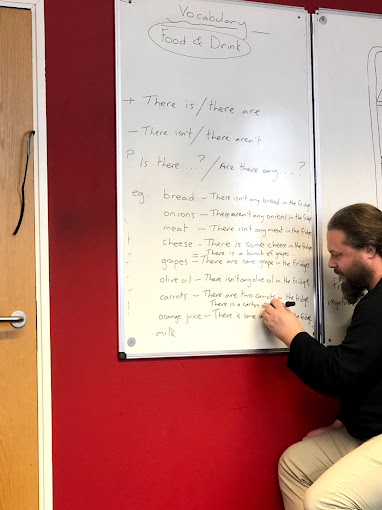 Vocabulary
Food & Drink
+ There is / there are
- There isn't / there aren't
? Is there...? / Are there any...?
eg. bread - There isn't any bread in the fridge
onions - There aren't any onions in the fridge
meat - There isn't any meat in the fridge
cheese - There is some cheese in the fridge
= There is a bunch of grapes
grapes - There are some grape in the fridge
olive oil - There isn't any olive oil in the fridge
carrots - There are two carrots in the fridge
There is a carton
orange juice - There is some the fridge
milk